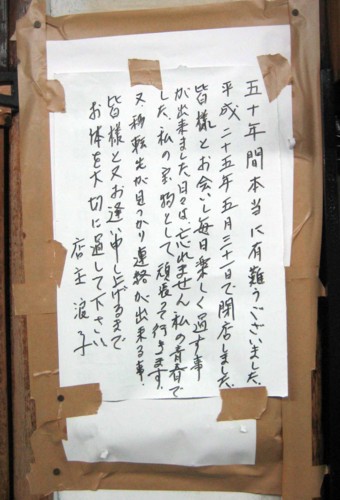 五十年間本当に有難うございました。
平成二十五年五月三十一日で閉店しました。
皆様とお会いし毎日楽しく過す事
が出来ました日々は、忘れません私の青春で
した。私の宝物として頑張って行きます。
又、移転先が見つかり連絡が出来る事、
皆様と又お逢い申し上げるまで
お体を大切に過して下さい。
店主 浪子